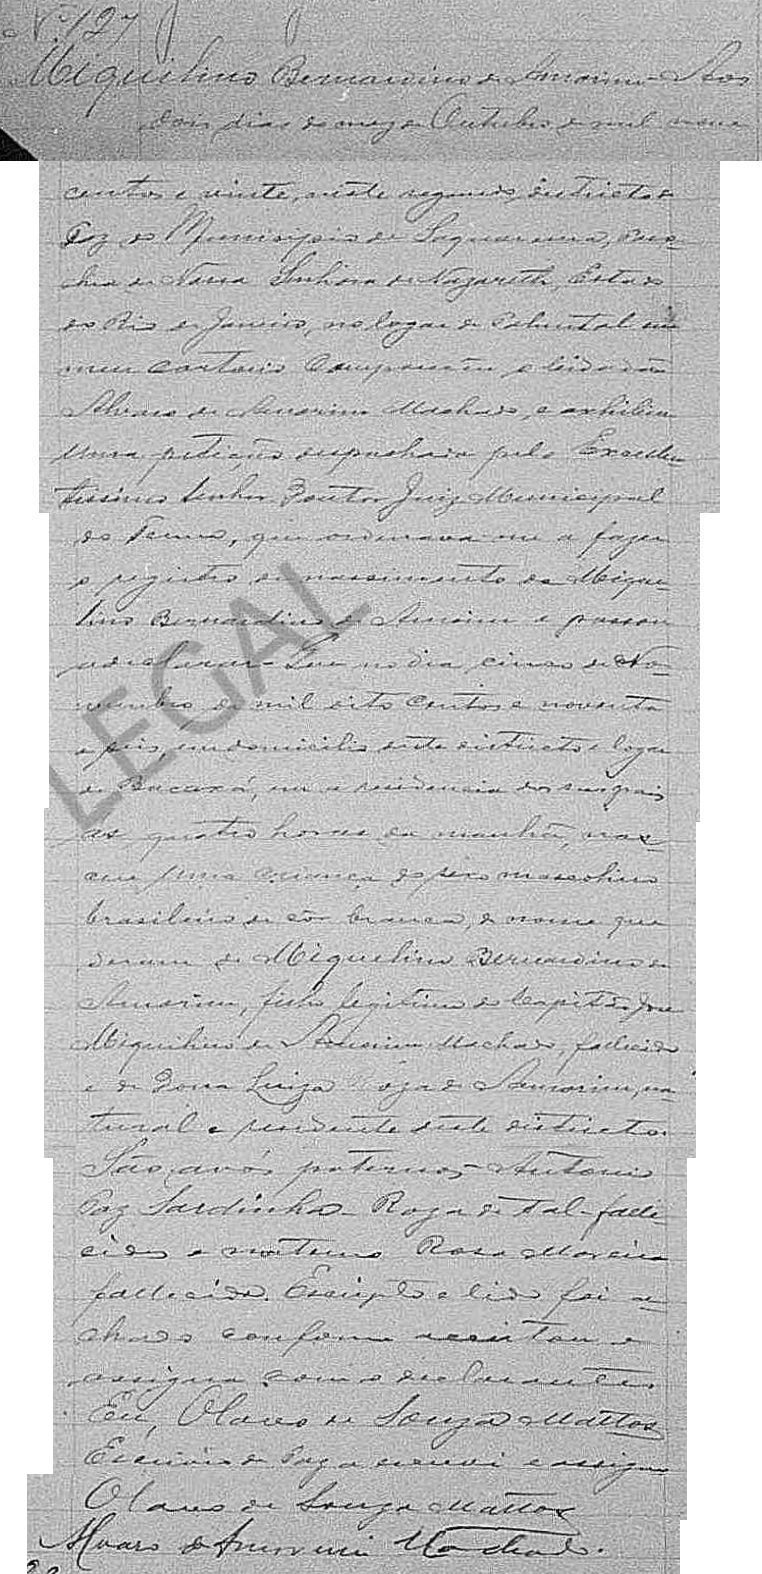 Nº 127
Miquilino Bernardino de Amorim - Aos
dois dias do mez de Outubro de mil nove
centos e vinte, neste segundo districto de
Paz do Municipio de Saquarema, Paro-
chia de Nossa Senhora de Nazareth, Estado
do Rio de Janeiro, no logar de Palmital em
meu cartorio compareceu o cidadão
Alvaro de Amorim Machado, e exhibiu
uma petição despachada pelo Excellen-
tissimo Senhor Doutor Juiz Municipal
do Termo, que ordenava-me a fazer
o registro de nascimento de Mique-
lino Bernardino de Amorim e passou
a declarar - Que no dia cinco de No-
vembro de mil oito centos e noventa
e seis, em domicilio deste districto e logar
de Bacaxá, em a residencia dos seus pais
as quatro horas da manhã, nas-
ceu uma criança do sexo masculino
brasileiro de côr branca, de nome que
deram de Miquelino Bernardino de
Amorim, filho legitimo do Capitão José
Miquilino de Amorim Machado, fallecido
e de Dona Luiza Roza de Amorim, na-
tural e residente deste districto.
São avós paternos - Antonio
Paz Sardinha - Roza de tal - falle-
cidos e materno Rosa Moreira
fallecida. Escripto e lido foi a-
chado conforme aceitou e
assigna com o declarante.
Eu, Olavo de Souza Mattos
Escrivão de Paz o escrevi e assigno
Olavo de Souza Mattos
Alvaro de Amorim Machado.
LEGAL